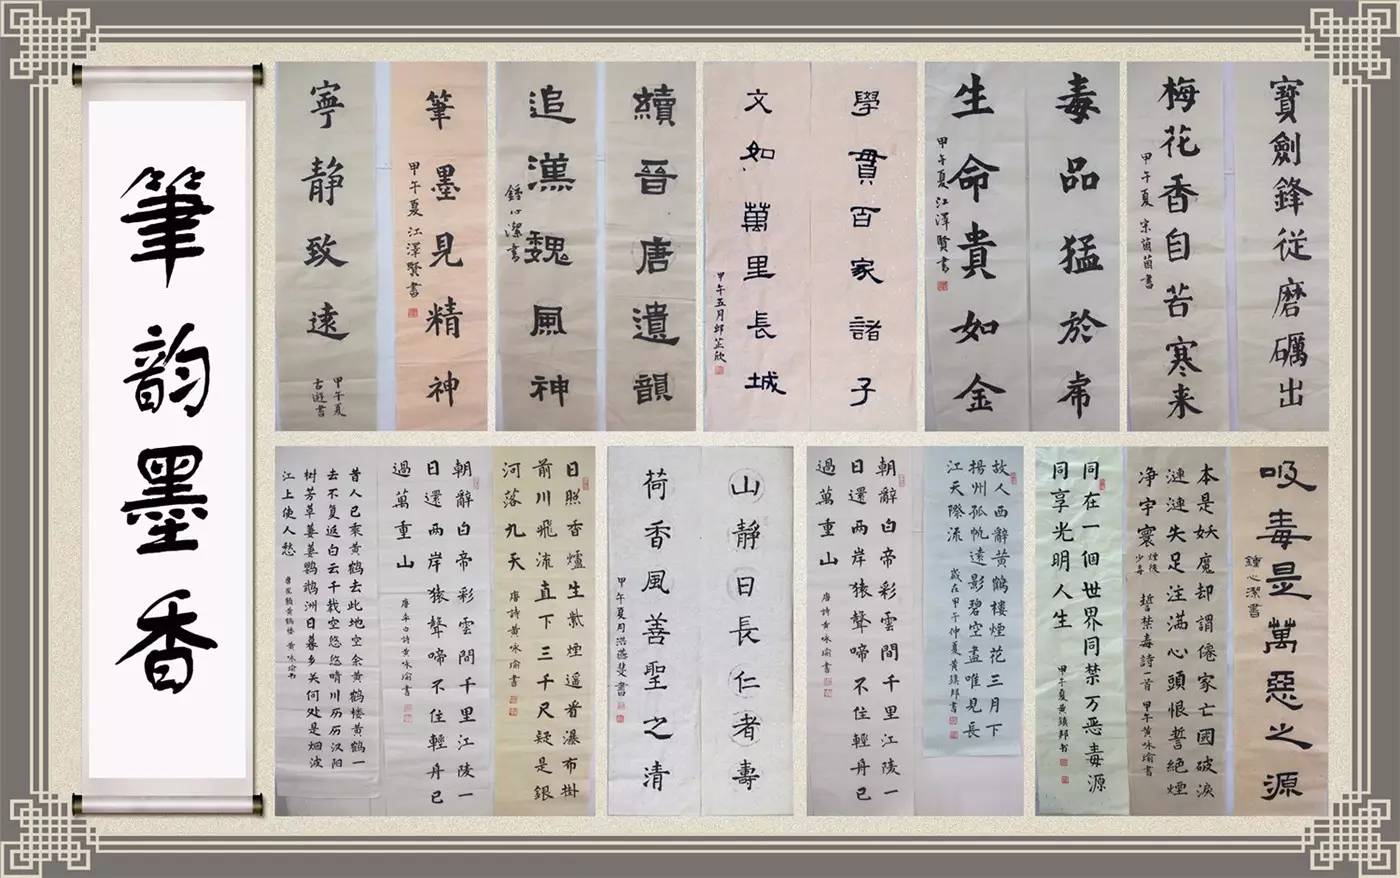 筆韵墨香
寶劍鋒從磨礪出
梅花香自苦寒来
甲午夏宋茵茵書
毒品猛於虎
生命貴如金
甲午夏江澤賢書
學貫百家諸子
文如萬里長城
甲午五月邱芷欣
續晉唐遺韻
追漢魏風神
鍾心潔書
筆墨見精神
甲午夏江澤賢書
寧静致遠
甲午夏
古遊書
吸毒是萬惡之源
鍾心潔書
本是妖魔却謂僊家亡国破淚
漣漣失足注滿心頭恨誓絶煙
净宇寰
誓禁毒詩一首 甲午黄咏瑜書
同在一個世界同禁万恶毒源
同享光明人生
甲午夏黄鎮邦书
故人西辭黄鶴樓煙花三月下
楊州孤帆遠影碧空盡唯見長
江天際流
歲在甲午仲夏黄鎮邦書
朝辭白帝彩雲間千里江陵一
日還两岸猿聲啼不住輕舟已
過萬重山
唐詩黄咏瑜書
山静日長仁者壽
荷香風善聖之清
甲午夏月洪燕斐書
日照香爐生紫煙遥看瀑布掛
前川飛流直下三千尺疑是銀
河落九天
唐詩黄咏瑜書
朝辭白帝彩雲間千里江陵一
日還两岸猿聲啼不住輕舟已
過萬重山
唐李白詩黄咏瑜書
昔人已乘黄鹤去此地空余黄鹤楼黄鹤一
去不复返白云千载空悠悠晴川历历汉阳
树芳草萋萋鹦鹉洲日暮乡关何处是烟波
江上使人愁
唐崔颢黄鹤楼 黄咏瑜书